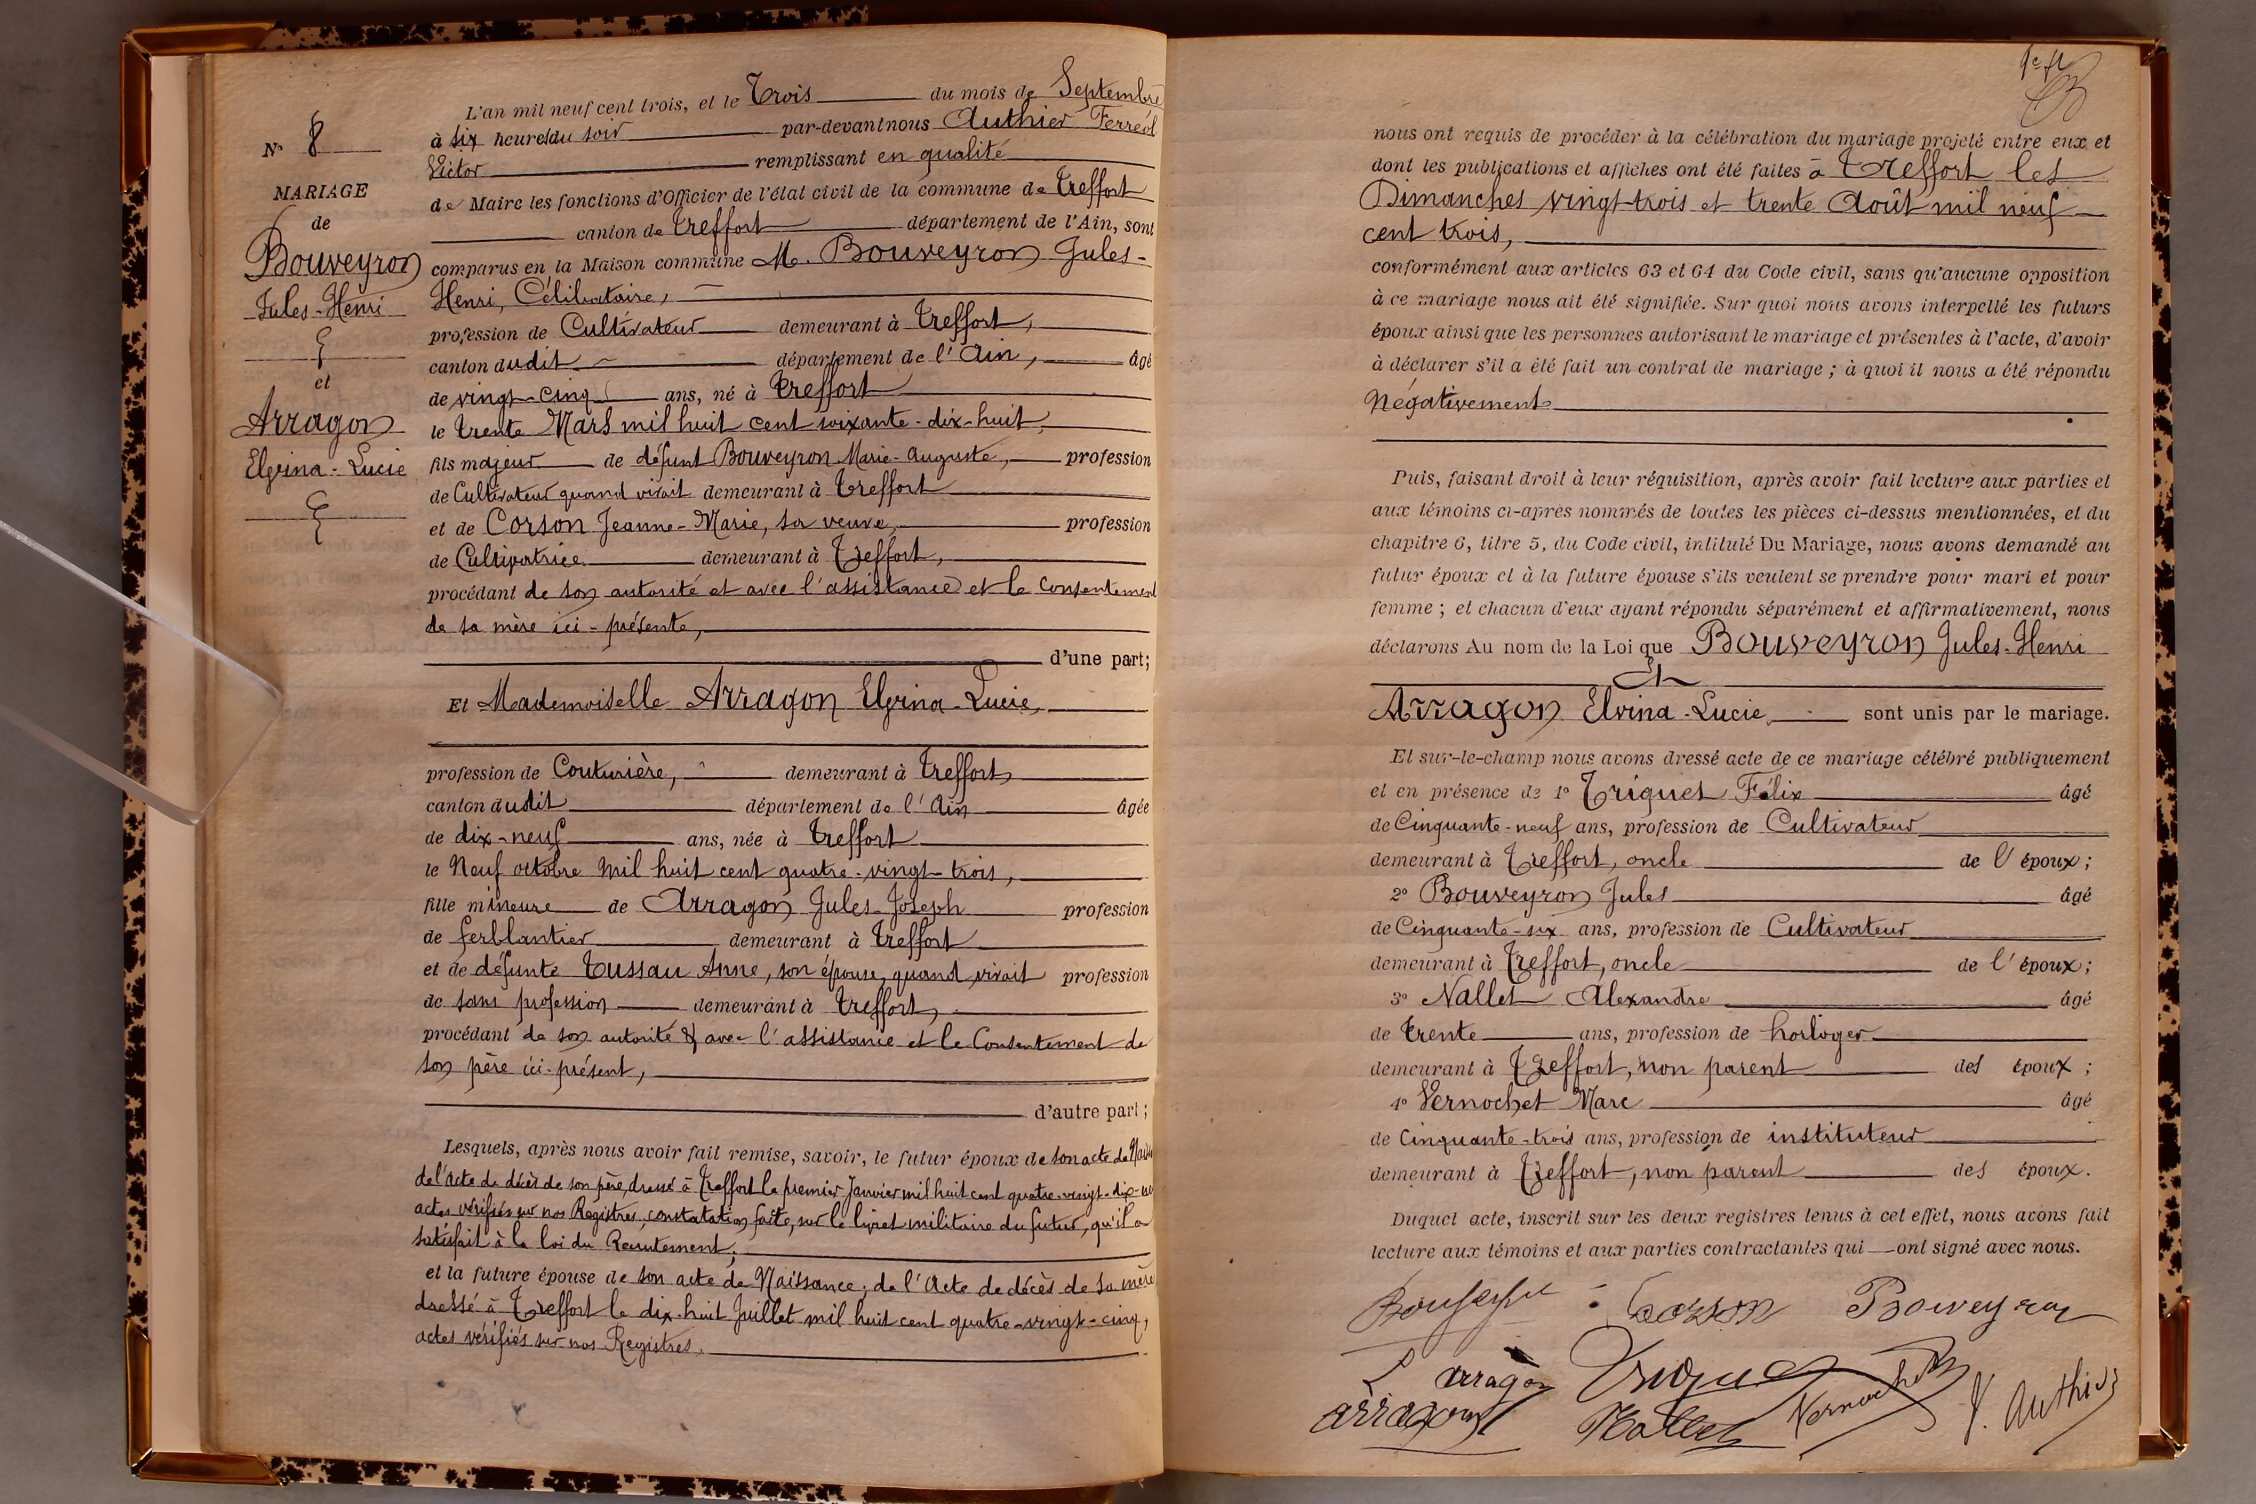 N° 8
MARIAGE
de
Bouveyron
Jules-Henri
et
Arragon
Elvina-Lucie
L'an mil neuf cent trois, et le Trois du mois de Septembre
à six heures du soir par-devant nous Authier Ferréol
Victor remplissant en qualité
de Maire les fonctions d'Officier de l'état civil de la commune de Treffort
canton de Treffort département de l'Ain, sont
comparus en la Maison commune M. Bouveyron Jules-
Henri, Célibataire,
profession de Cultivateur demeurant à Treffort,
canton dudit département de l'Ain, âgé
de vingt-cinq ans, né à Treffort
le trente Mars mil huit cent soixante-dix-huit,
fils majeur de défunt Bouveyron Marie-Auguste, profession
de Cultivateur quand vivait demeurant à Treffort
et de Corson Jeanne-Marie, sa veuve, profession
de Cultivatrice demeurant à Treffort,
procédant de son autorité et avec l'assistance et le Consentement
de sa mère ici-présente,
d'une part;
Et Mademoiselle Arragon Elvina-Lucie,
profession de Couturière, demeurant à Treffort
canton dudit département de l'Ain âgée
de dix-neuf ans, née à Treffort
le Neuf octobre mil huit cent quatre-vingt-trois,
fille mineure de Arragon Jules-Joseph profession
de ferblantier demeurant à Treffort
et de défunte Tussau Anne, son épouse, quand vivait profession
de sans profession demeurant à Treffort,
procédant de son autorité & avec l'assistance et le Consentement de
son père ici-présent,
d'autre part;
Lesquels, après nous avoir fait remise, savoir, le futur époux de son acte de
de l'acte de décès de son père, dressé à Treffort le premier Janvier mil huit cent quatre-vingt-dix-
actes vérifiés sur nos Registres, constatation faite, sur le livret militaire du futur, qu'il a
satisfait à la loi du Recrutement;
et la future épouse de son acte de Naissance; de l'Acte de décès de sa mère
dressé à Treffort le dix-huit Juillet mil huit cent quatre-vingt-cinq,
actes vérifiés sur nos Registres.
nous ont requis de procéder à la célébration du mariage projeté entre eux et
dont les publications et affiches ont été faites à Treffort les
Dimanches vingt-trois et trente Août mil neuf
cent trois,
conformément aux articles 63 et 64 du Code civil, sans qu'aucune opposition
à ce mariage nous ait été signifiée. Sur quoi nous avons interpellé les futurs
époux ainsi que les personnes autorisant le mariage et présentes à l'acte, d'avoir
à déclarer s'il a été fait un contrat de mariage; à quoi il nous a été répondu
Négativement
Puis, faisant droit à leur réquisition, après avoir fait lecture aux parties et
aux témoins ci-après nommés de toutes les pièces ci-dessus mentionnées, et du
chapitre 6, titre 5, du Code civil, intitulé Du Mariage, nous avons demandé au
futur époux et à la future épouse s'ils veulent se prendre pour mari et pour
femme; et chacun d'eux ayant répondu séparément et affirmativement, nous
déclarons Au nom de la Loi que Bouveyron Jules-Henri
Et
Arragon Elvina-Lucie, sont unis par le mariage.
Et sur-le-champ nous avons dressé acte de ce mariage célébré publiquement
et en présence de 1° Triquet Félix âgé
de Cinquante-neuf ans, profession de Cultivateur
demeurant à Treffort, oncle de l'époux;
2° Bouveyron Jules âgé
de Cinquante-six ans, profession de Cultivateur
demeurant à Treffort, oncle de l'époux;
3° Nallet Alexandre âgé
de trente ans, profession de horloger
demeurant à Treffort, non parent des époux;
4° Vernochet Marc âgé
de Cinquante-trois ans, profession de instituteur
demeurant à Treffort, non parent des époux.
Duquel acte, inscrit sur les deux registres tenus à cet effet, nous avons fait
lecture aux témoins et aux parties contractantes qui ont signé avec nous.
Corson Bouveyron
L arragon Triquet Vernochet
arragon Nallet V. Authier